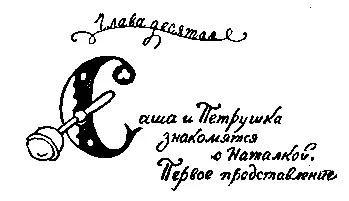 Глава десятая
Саша и Петрушка
знакомятся
с Наталкой.
Первое представление